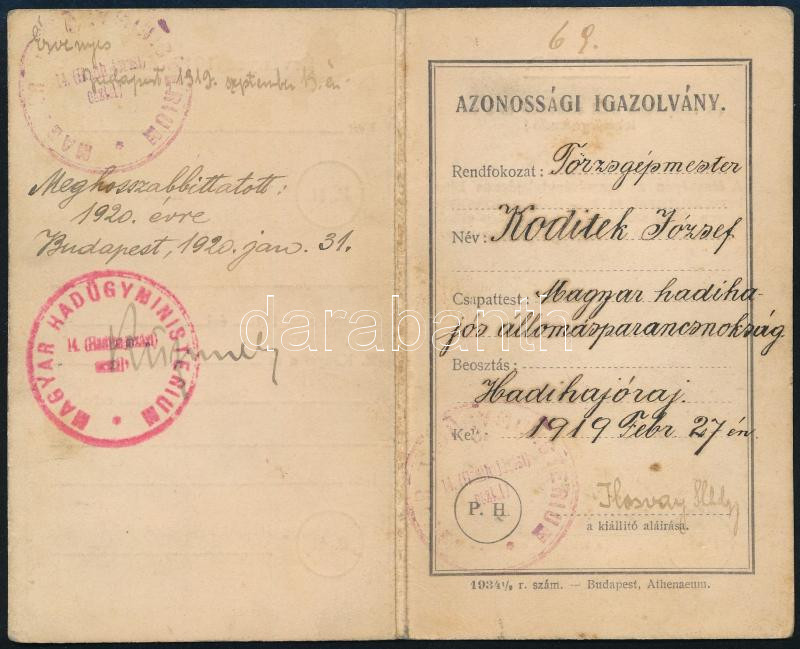 Érvényes
Budapest, 1919. september 13.-én
Meghosszabbittatott:
1920. évre
Budapest, 1920. jan. 31.
MAGYAR HADÜGYMINISZTERIUM
14. (Hadihajózási)
oszt.
69.
AZONOSSÁGI IGAZOLVÁNY.
Rendfokozat: Törzsgépmester
Név: Koditek József
Csapattest: Magyar hadiha-
jós allomásparancsnokság
Beosztás:
Hadihajóraj.
Kelt: 1919 Febr 27 én
P. H.
a kiállító aláirása.
1934½ r. szám. — Budapest, Athenaeum.
darabanth